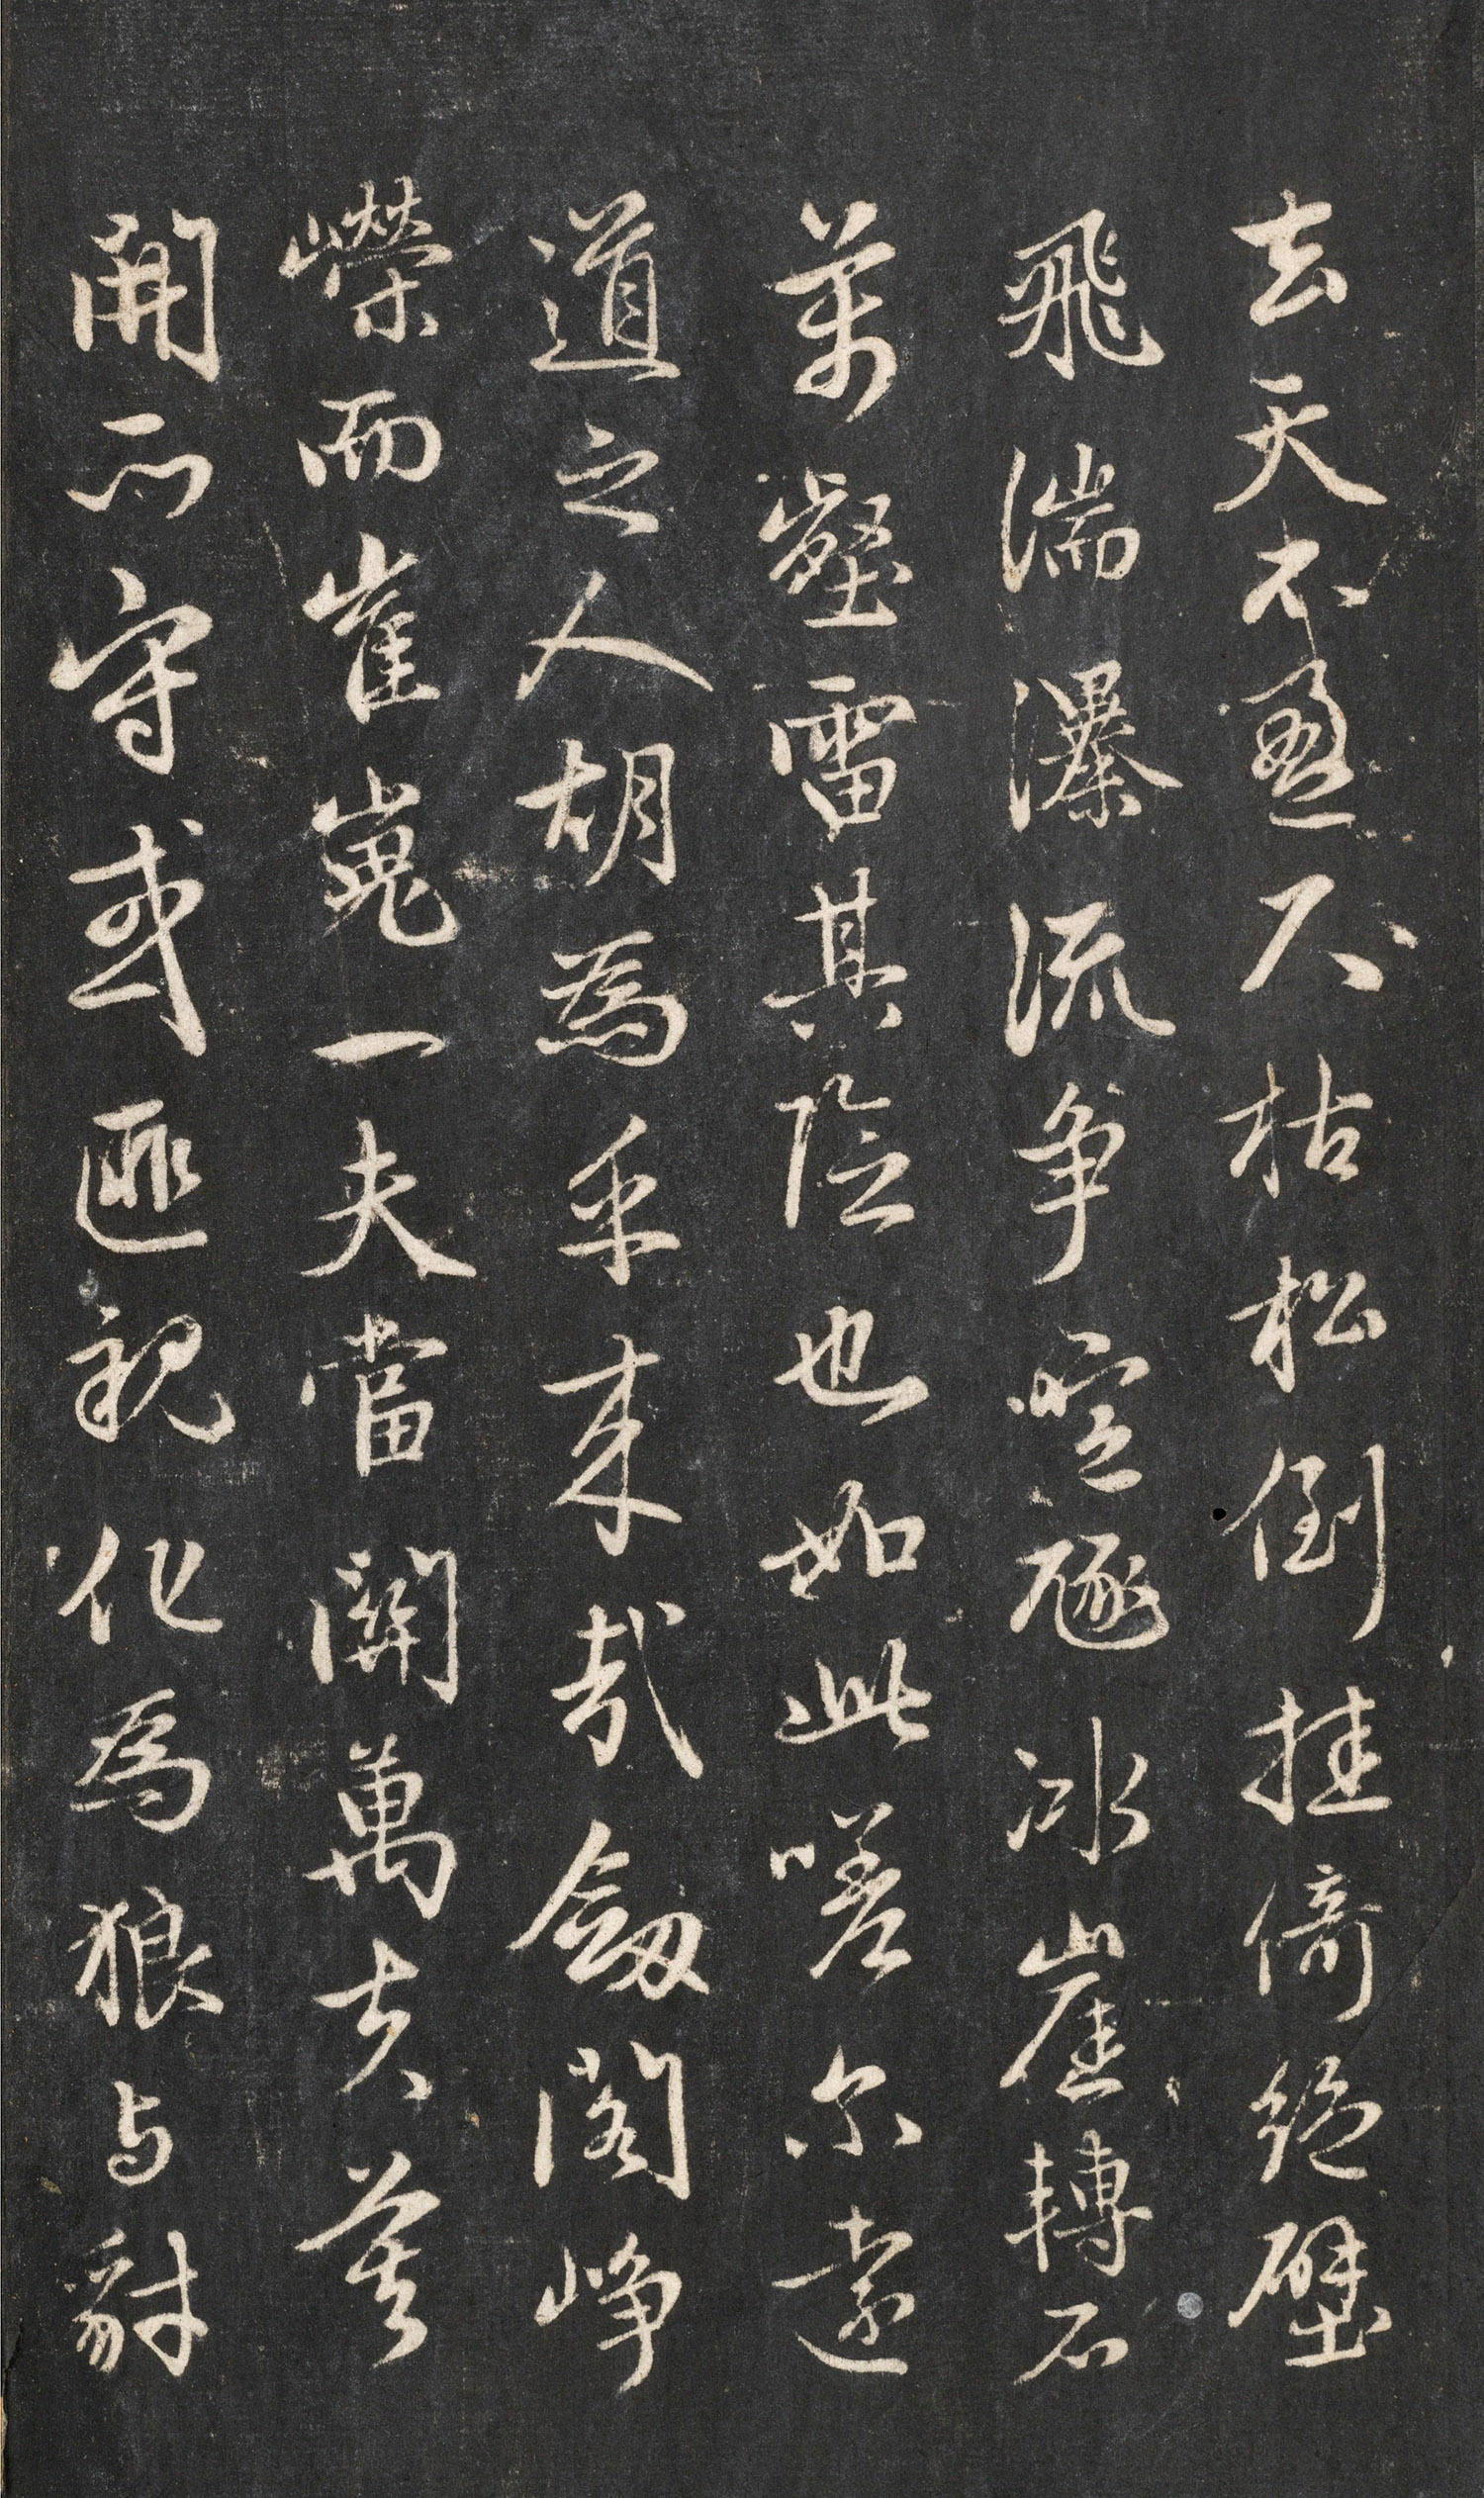 去天不盈尺枯松倒挂倚絶壁
飛湍瀑流争喧豗冰崖轉石
萬壑雷其險也如此嗟尔遠
道之人胡為乎来哉劒閣峥
嶸而崔嵬一夫當關萬夫莫
開所守或匪親化為狼与豺